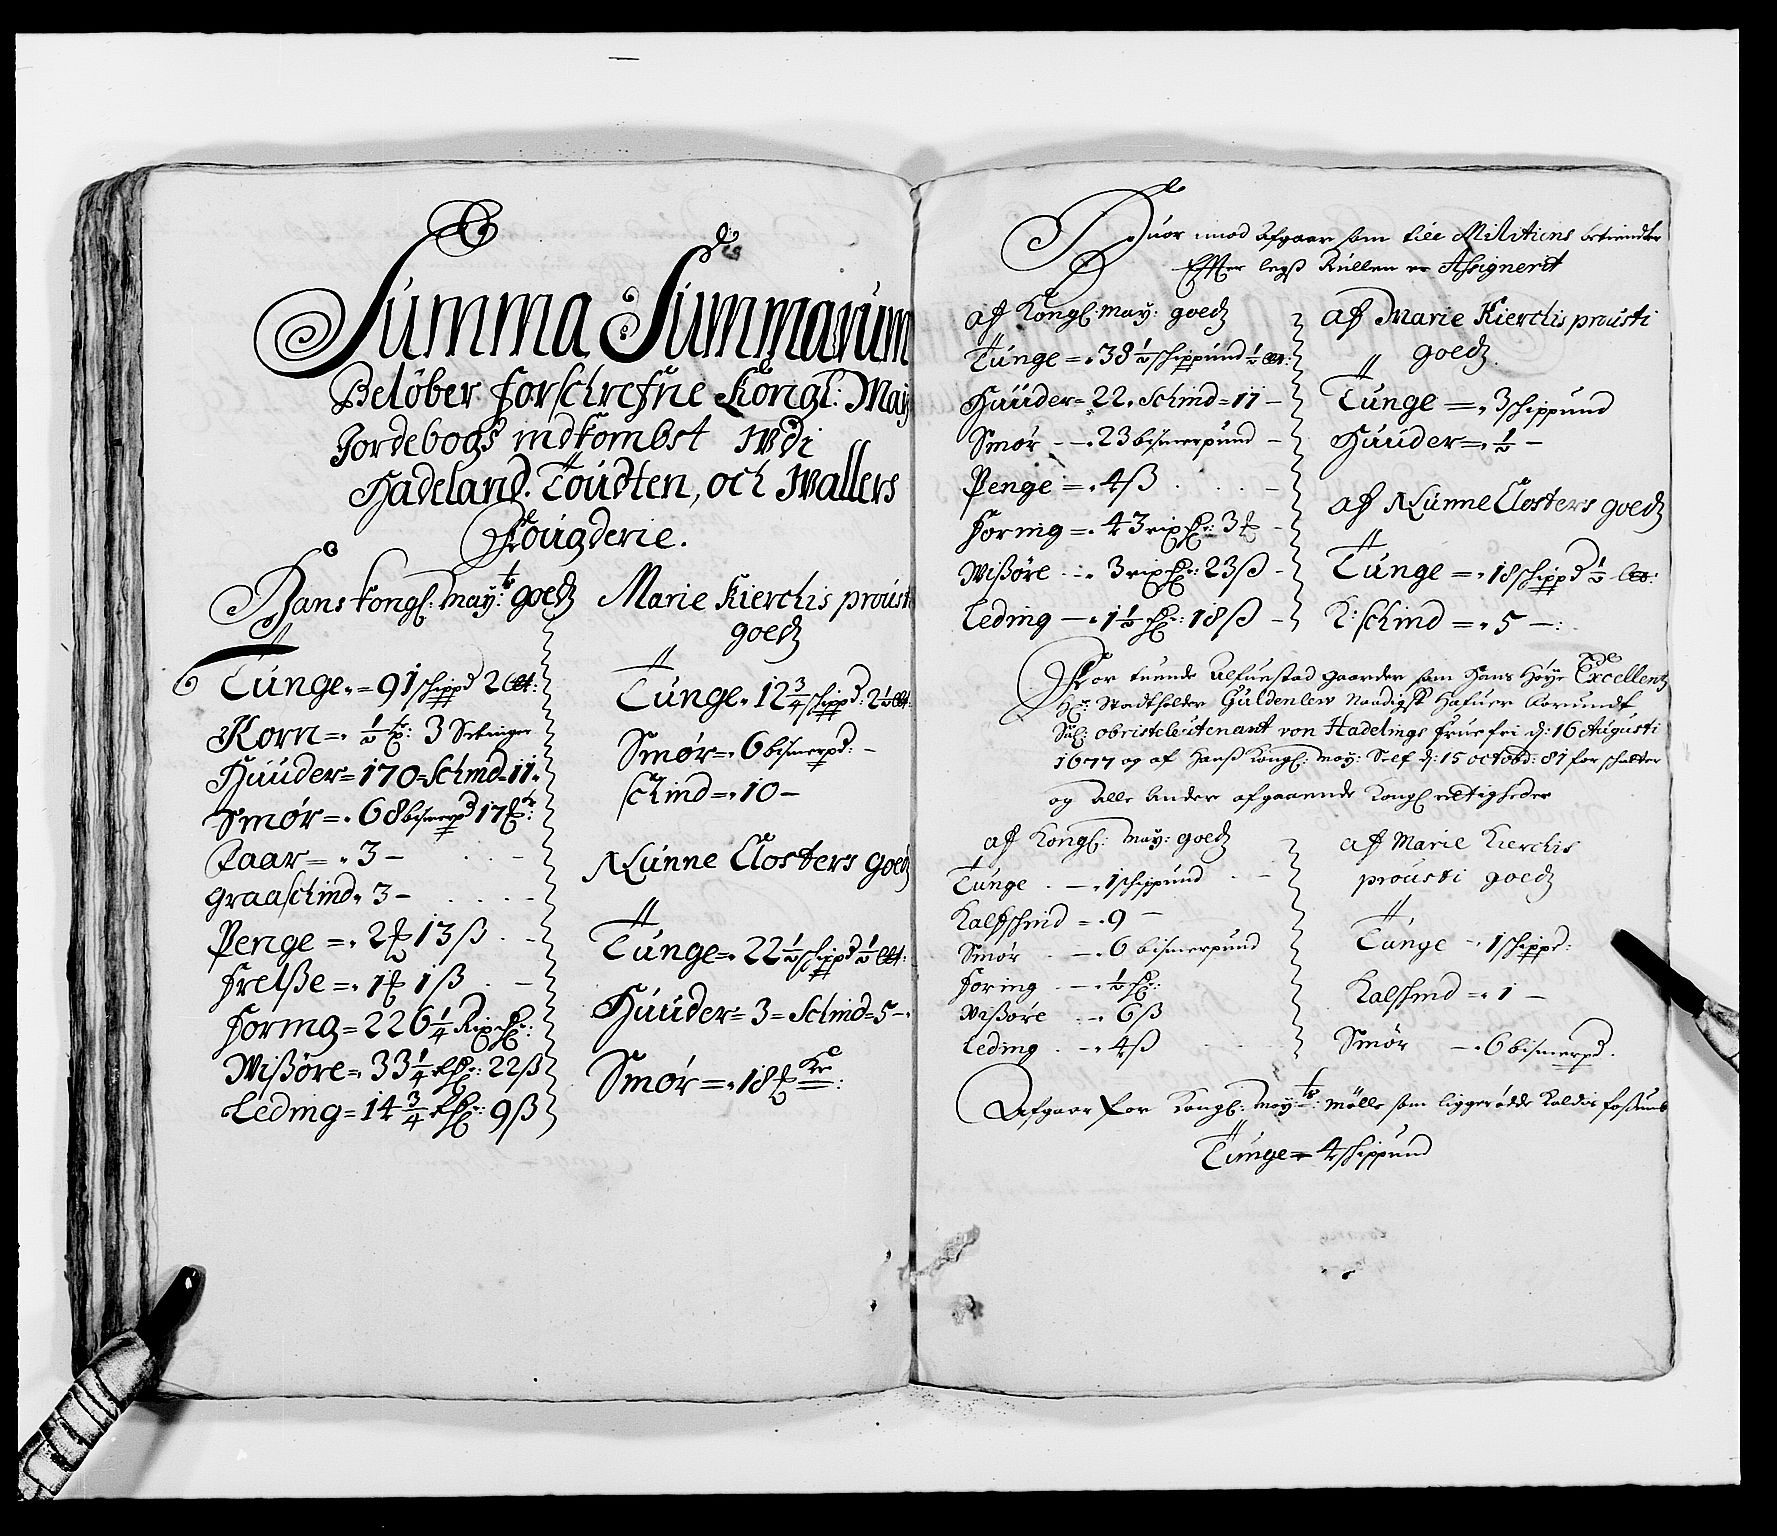 Summa Summarum
Belöber forschrefne Kongl: May
Jordebogs indkombst Wdi
Hadeland. Toudten, och Wallers
Fougderie.
Hans kongl: may:ts goedz
Tunge = 91 schippd 2
Korn = ½ 3 Setinger
Huuder = 170 = Schind = 11
Smör = 68 bismerpd 17
Faar = 3 -
Graaschind 3 -
Penge = 2 13 ß
Frelße = 1 1 ß
Foring = 226 ¼ Rix
Wißöre = 33 ¼ 22 ß
Leding = 14 ¾ 9 ß
Marie Kierchis proust
goedz
Tunge 12 ¾ schippd: 2 ½
Smör = 6 bismerpd: -
schind = 10 -
Nunne Closters goedz
Tunge = 22 ½ schippd ½
Huuder = 3 = Schind = 5 -
Smör = 18
Huor imod afgaar som till Militiens
Effter legß Rullen er Assignerit
af Kongl: may: goedz
Tunge = 38 ½ schippund ½
Huuder = 22. Schind = 11 -
Smör - 23 bismerpund -
Penge = 4 ß
Foring = 43 rix 3
Wißöre - 3 rix 23 ß -
Leding - 1 ½ 18 ß -
af Marie Kierchis prousti
goedz
Tunge = 3 schippund
Huuder = ½ -
af Nunne Closters goedz
Tunge = 18 schippd ½
K: schind = 5 -
For tuende gaarder som Hans Höye Excellentz
Hr: Stadtholder Guldenlew Naadigst hafuer forundt
Sal: obristeleutenant von Hadelings frue fri d: 16 Augusti
1677 og af Hanß Kongl: may: Self d: 15 octob: 81 for schatter
og alle andre afgaaende Kongl rettigheder
af Kongl: may: goedz
Tunge - 1 schippund
Kalfschind = 9 -
Smör - 6 bismerpund
Foring - ½
Wißöre - 6 ß
Leding - 4 ß
af Marie Kierchis
prousti goedz
Tunge - 1 schippd:
Kalfschind = 1 -
Smör - 6 bismerpd.
Afgaar for Kongl: may:ts Mölle som ligger ödde
Tunge = 4 schippund